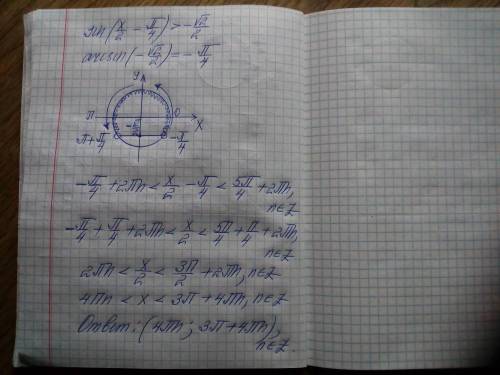 sin(x/2 - π/4) > -√2/2
arcsin(-√2/2) = -π/4
y
π 0
x
π+π/4 -π/4
-π/4 + 2πn < x/2 - π/4 < 5π/4 + 2πn,
n∈Z
-π/4 + π/4 + 2πn < x/2 < 5π/4 + π/4 + 2πn,
n∈Z
2πn < x/2 < 3π/2 + 2πn, n∈Z
4πn < x < 3π + 4πn, n∈Z
Ответ: (4πn; 3π+4πn),
n∈Z.